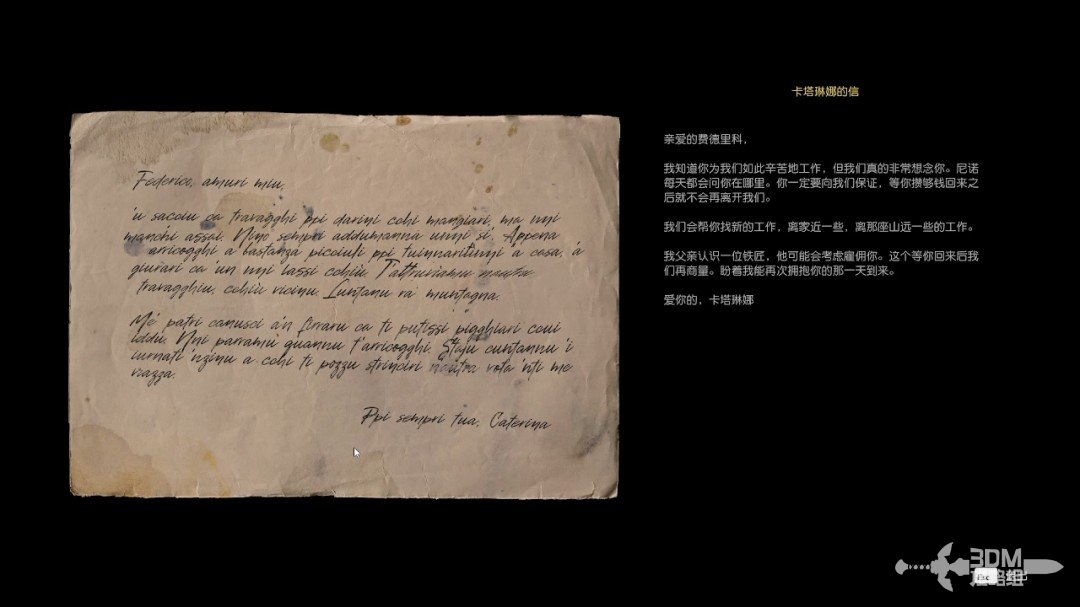 Federico, amuri miu,
'u sacciu ca travagghi ppi darini cchi mangiari, ma nni
manchi assai. Nino sempri addumanna unni si'. Appena
arricogghi a bastanza picciuli ppi tuinnaritinni a casa, 'a
giurari ca 'un nni lassi cchiù. T'attruviamu nautru
travagghiu, cchiù vicinu. Luntanu râ muntagna.
Mé patri canusci a'n firraru ca ti putissi pigghiari ccu
iddu. Nni parramu quannu t'arricogghi. Staju cuntannu 'i
jurnati 'nzinu a cchi ti pozzu strinciri nautra vota 'nti me
vrazza.
Ppi sempri tua, Caterina
卡塔琳娜的信
亲爱的费德里科，
我知道你为我们如此辛苦地工作，但我们真的非常想念你。尼诺
每天都会问你在哪里。你一定要向我们保证，等你攒够钱回来之
后就不会再离开我们。
我们会帮你找新的工作，离家近一些，离那座山远一些的工作。
我父亲认识一位铁匠，他可能会考虑雇佣你。这个等你回来后我
们再商量。盼着我能再次拥抱你的那一天到来。
爱你的，卡塔琳娜
3DM
Esc